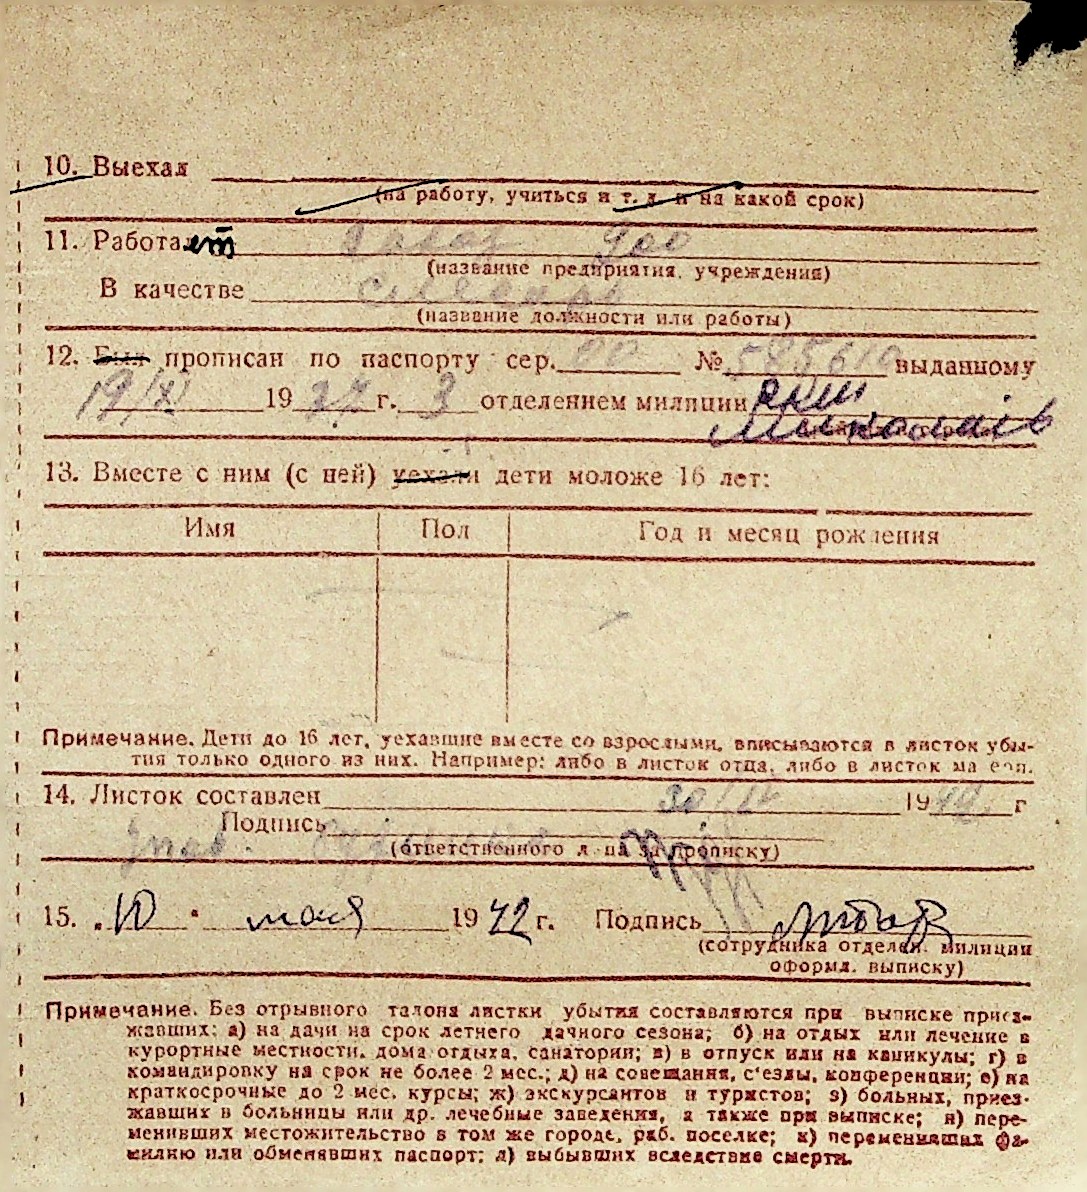 10. Выехал
(на работу, учиться и т. д. и на какой срок)
11. Работает
(название предприятия, учреждения)
В качестве слесарь
(название должности или работы)
12. Был прописан по паспорту сер. № выданному
19/XI 1937 г. 3 отделением милиции
13. Вместе с ним (с ней) уехали дети моложе 16 лет:
Имя Пол Год и месяц рождения
Примечание. Дети до 16 лет, уехавшие вместе со взрослыми, вписываются в листок убы-
тия только одного из них. Например: либо в листок отца, либо в листок ма ери.
14. Листок составлен 30/IV 1942 г
Подпись
(ответственного л ца за прописку)
15. "10" мая 1942 г. Подпись
(сотрудника отделен. милиции
оформл. выписку)
Примечание. Без отрывного талона листки убытия составляются при выписке приез-
жавших: а) на дачи на срок летнего дачного сезона; б) на отдых или лечение в
курортные местности, дома отдыха, санатории; в) в отпуск или на каникулы; г) в
командировку на срок не более 2 мес.; д) на совещания, с'езды, конференции; е) на
краткосрочные до 2 мес. курсы; ж) экскурсантов и туристов; з) больных, приез-
жавших в больницы или др. лечебные заведения, а также при выписке; и) пере-
менивших местожительство в том же городе, раб. поселке; к) переменивших фа-
милию или обменявших паспорт; л) выбывших вследствие смерти.